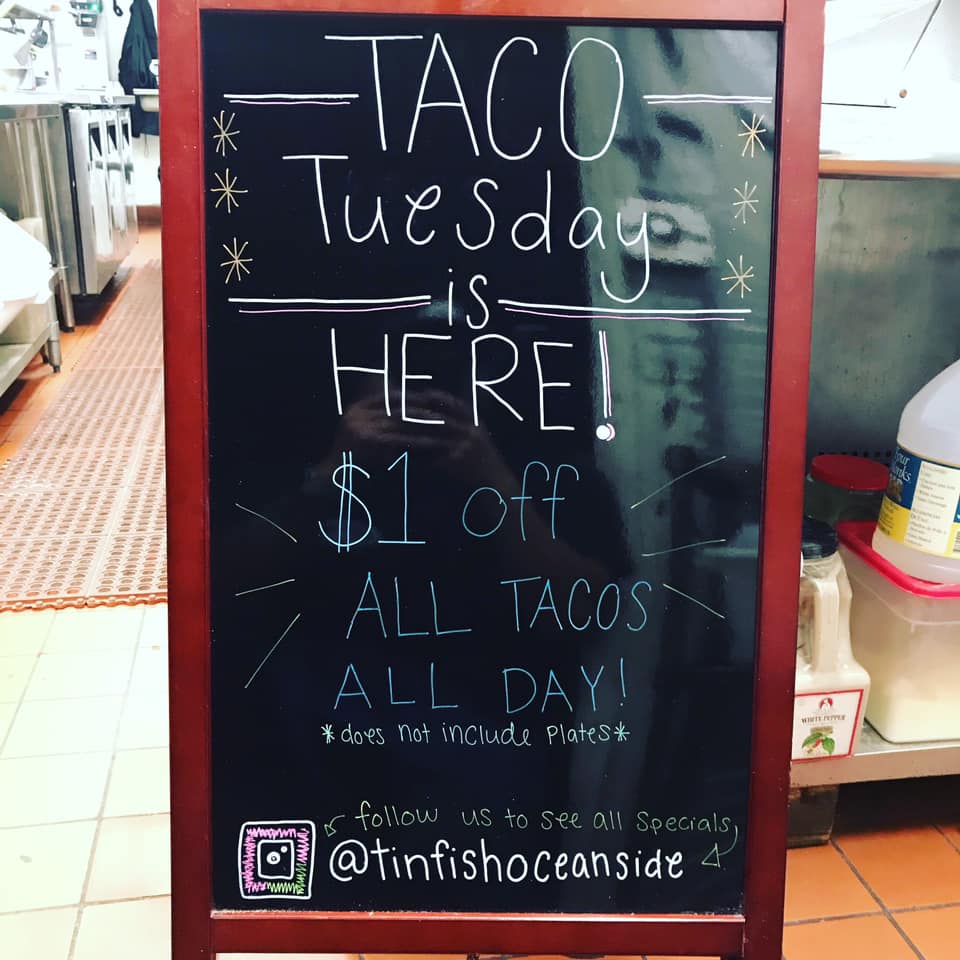 TACO
Tuesday
is
HERE!
$1 off
ALL TACOS
ALL DAY!
*does not include Plates*
follow us to see all specials
@tinfishoceanside
WHITE PEPPER